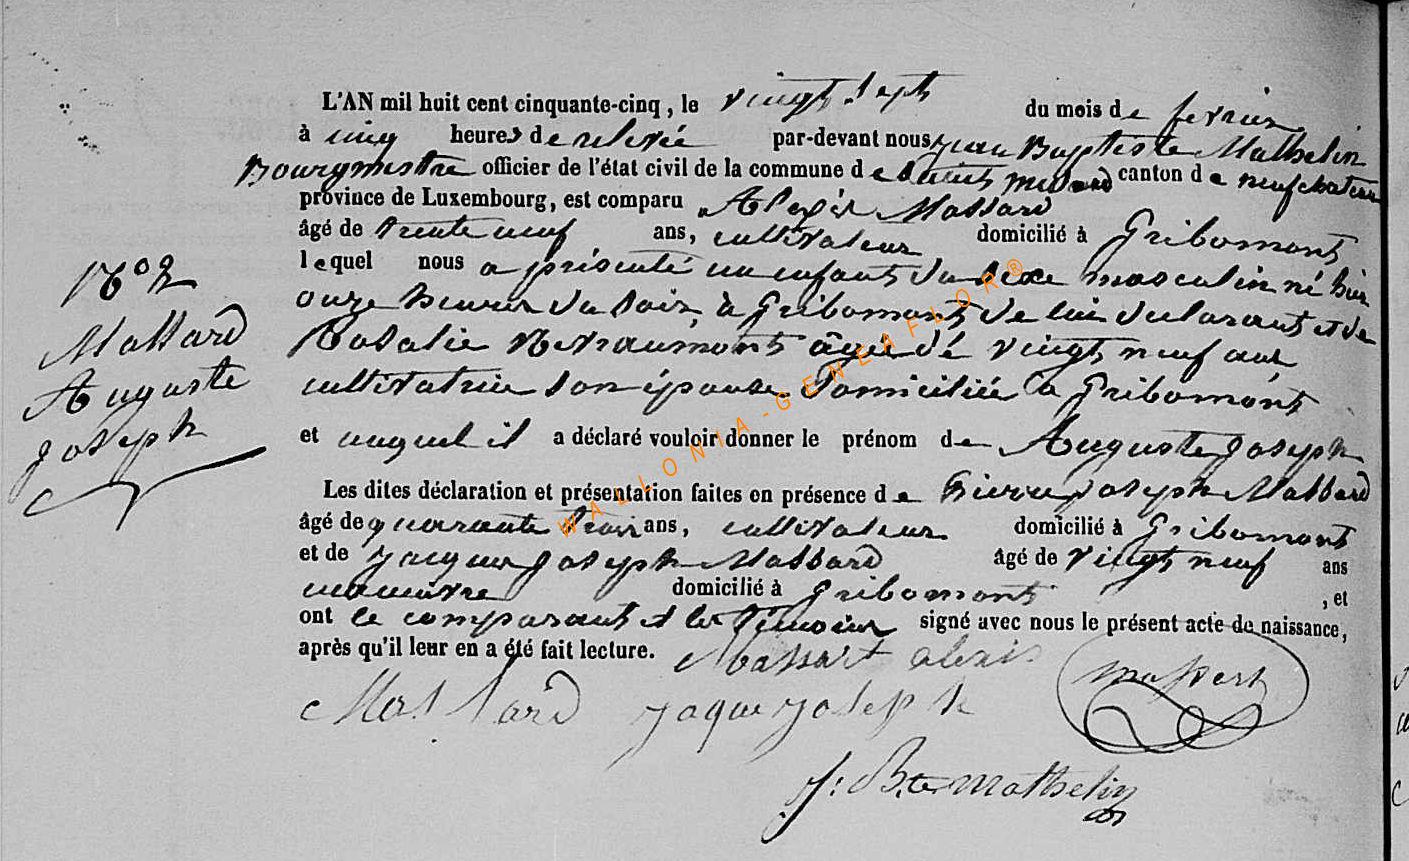 L'AN mil huit cent cinquante-cinq, le vingt sept du mois de fevrier
à cinq heures de relevée par-devant nous Jean Baptiste Mathelin
Bourgmestre officier de l'état civil de la commune de Saint Medard canton de neufchateau
province de Luxembourg, est comparu Alexis Massard
âgé de trente neuf ans, cultivateur domicilié à Gribomont
lequel nous a présenté un enfant du sexe masculin né hier
onze heures du soir, à Gribomont de lui declarant et de
Rosalie âgée de vingt neuf ans
cultivatrice son épouse domiciliée à Gribomont
et auquel il a déclaré vouloir donner le prénom de Auguste Joseph
Les dites déclaration et présentation faites en présence de Pierre Joseph Massard
âgé de quarante trois ans, cultivateur domicilié à Gribomont
et de Jacques Joseph Massard âgé de vingt neuf ans
domicilié à Gribomont, et
ont le comparant et les témoins signé avec nous le présent acte de naissance,
après qu'il leur en a été fait lecture. Massart alexis
Massard Jaque Joseph massart
J: Bte Mathelin
No 2
Massard
Auguste
Joseph
WALLONIA-GENEAFLOR®